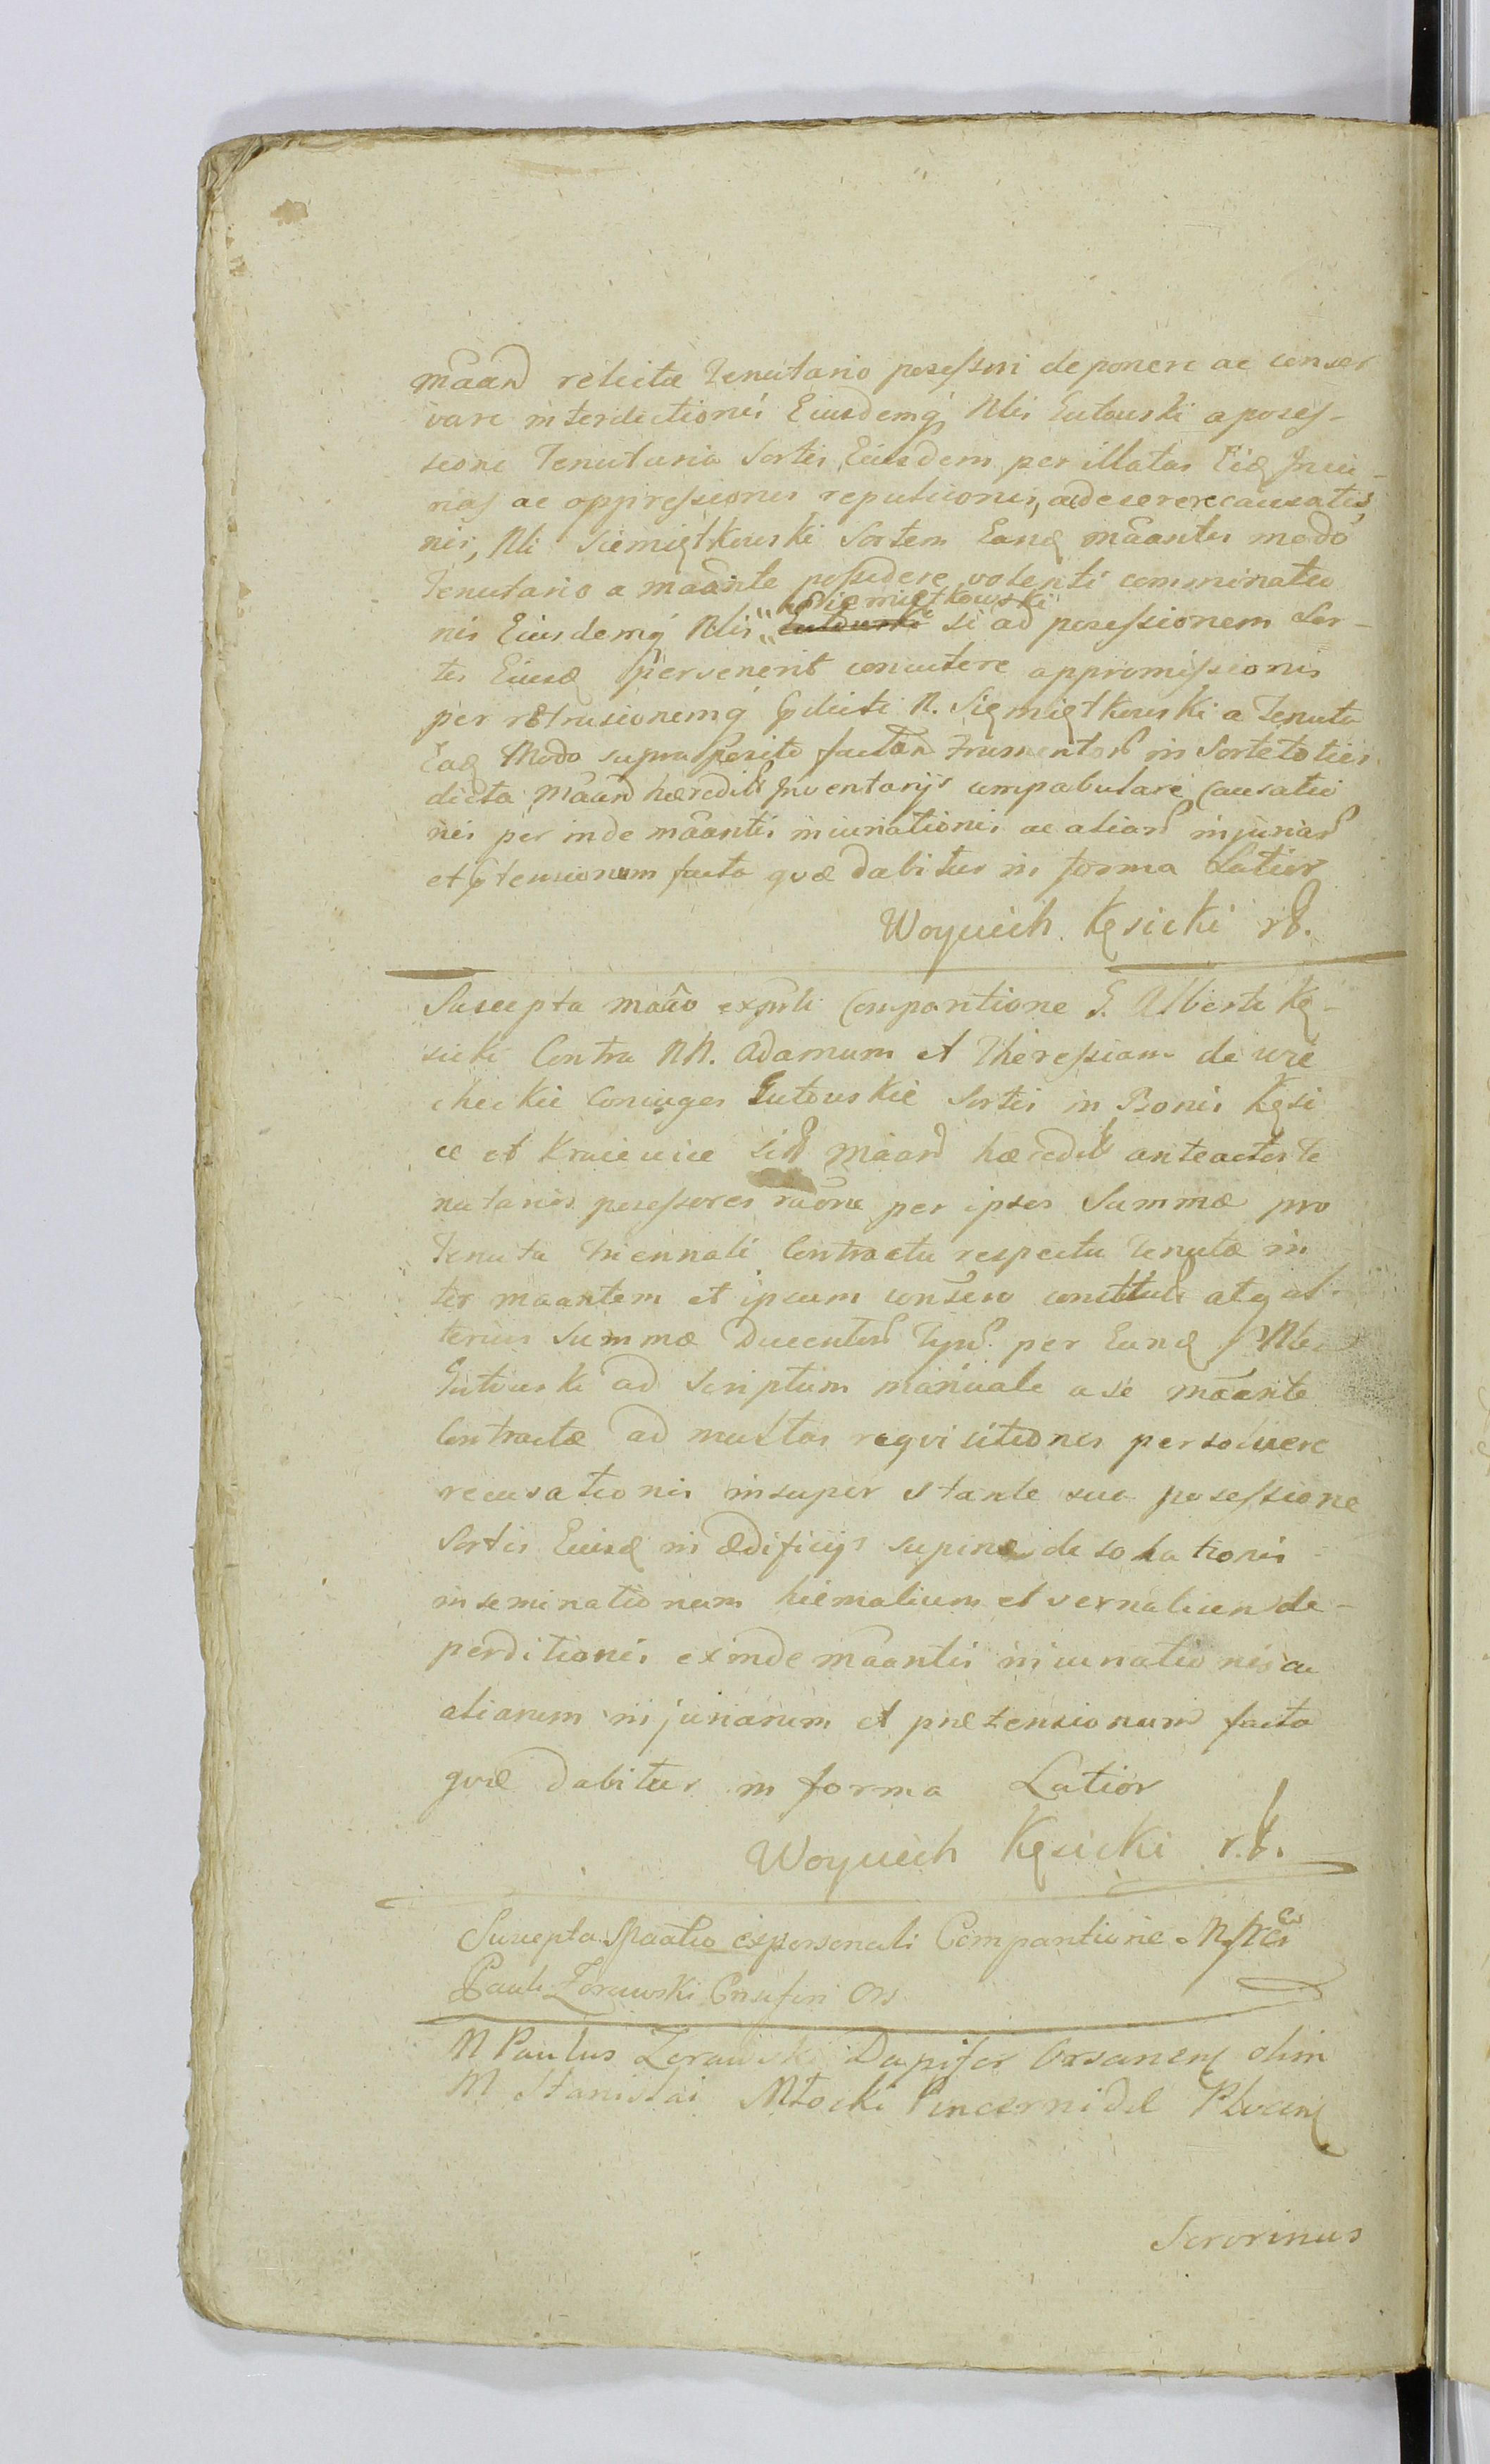 mâand relictæ Tenutario posessori deponere ac conser
vare interdictionis Eiusdemq́ Nlis Gutowski a poses-
sione Tenutaria Sortis Eiusdem per illatas Eid Iniu-
rias ac oppressiones repulsionis,
nis, Nli Siemiątkowski Sortem Eand mâantis modo
Tenutario a mâante possidere volenti comminatio
nis Eiusdemq́ Nlis " Siemiątkowski si ad posessionem Sor-
tis Eiusd pervenerit concutere appromissionis
per retrusionemq́ pdicti N. Siemiątkowski a Tenuta
Ead Modo supra sposito factam frumentor in Sorte toties
dicta mâand hæredit Inventarijs compabulare Causatio
nis per inde mâantis iniuriationis ac aliar injuriar
et ptensionum facta quæ dabitur in forma Latior
Woyciech Kęsicki
Suscepta maâo expnli Comparitione G. Alberti Kę-
sicki Contra NN. Adamum et Theressiam de
Coniuges Gutowskie Sortis in Bonis Kęsi
ce et Kraiewice mâand hæredit anteactos te
nutarios posessores raõne per ipsos Summæ pro
Tenuta triennali Contractu respectu Tenutæ in
ter maantem et ipsum constituto atq al
terius Summæ Ducentor Tynf. per Eund Nlem
Gutowski ad Scriptum manuale a se mâante
Contractæ ad multas requisitiones persolvere
recusationis insuper stante sua posessione
Sortis Eiusd in Ædificijs supinæ desolationis
inseminationum hiemalium et vernalium de-
perditionis exinde mâantis iniuriationis ac
aliarum injuriarum et prætensionum facta
quæ dabitur in forma Latior
Woyciech Kęsicki
Suscepta Maãtio expersonali Comparitione M.
Pauli Zorawski
M Paulus Zorawski Dapifer olim
M Stanislai Młocki Pincernidæ Plocen
Sororinus